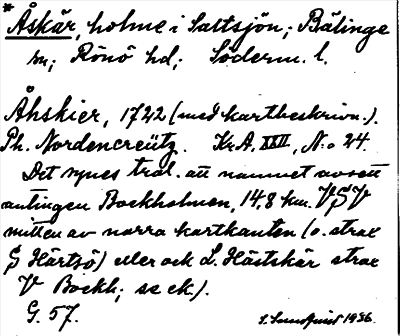 * Åskär, holme i Saltsjön; Bälinge
sn; Rönö hd; Söderm. l.
Åhskier, 1722 (med kartbeskrivn.).
Ph. Nordencreütz. Kr.A. XXII, N:o 24.
Det synes trol. att namnet avsett
antingen Bockholmen, 14,8 km. VSV
mitten av norra kartkanten (o. strax
S Härtsö) eller ock L. Hästskär strax
V Bockh; se ek.).
G. 57.
S. Sundquist 1936.